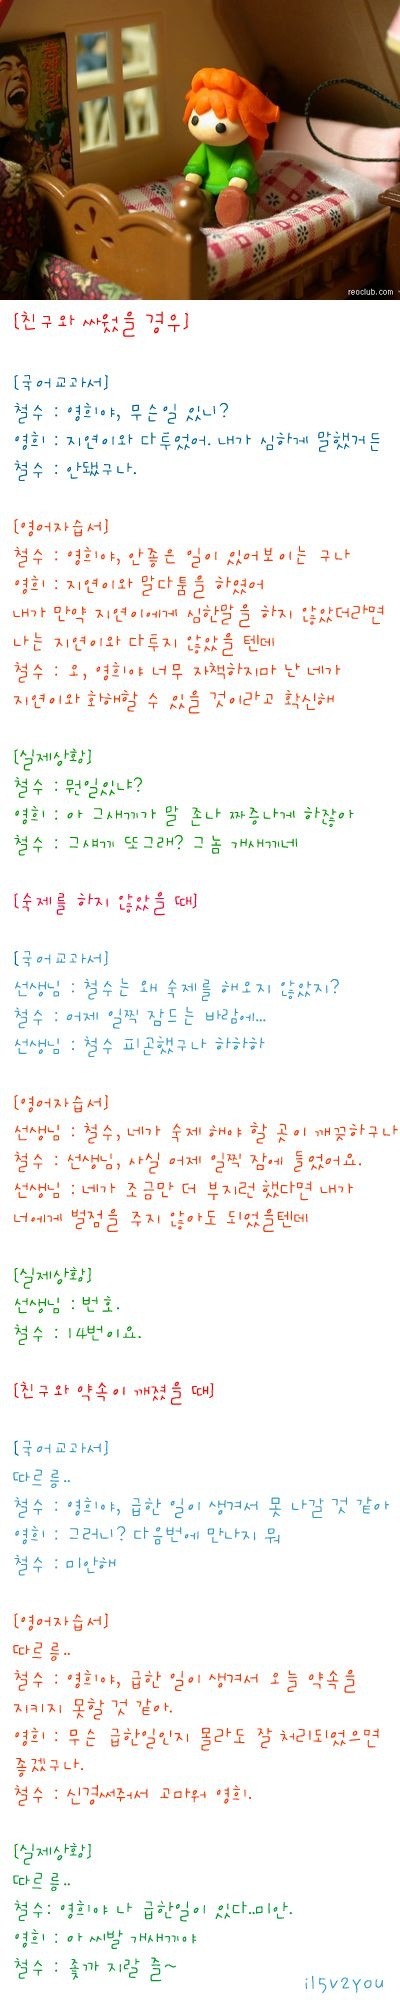 reoclub.com
[친구와 싸웠을 경우]
[국어교과서]
철수 : 영희야, 무슨일 있니?
영희 : 지연이와 다투었어. 내가 심하게 말했거든
철수 : 안됐구나.
[영어자습서]
철수 : 영희야, 안좋은 일이 있어보이는 구나
영희 : 지연이와 말다툼을 하였어
내가 만약 지연이에게 심한말을 하지 않았더라면
나는 지연이와 다투지 않았을 텐데
철수 : 오, 영희야 너무 자책하지마 난 네가
지연이와 화해할 수 있을 것이라고 확신해
[실제상황]
철수 : 뭔일있냐?
영희 : 아 그새끼가 말 존나 짜증나게 하잖아
철수 : 그섀끼 또그래? 그놈 개새끼네
[숙제를 하지 않았을 때]
[국어교과서]
선생님 : 철수는 왜 숙제를 해오지 않았지?
철수 : 어제 일찍 잠드는 바람에...
선생님 : 철수 피곤했구나 하하하
[영어자습서]
선생님 : 철수, 네가 숙제 해야 할 곳이 깨끗하구나
철수 : 선생님, 사실 어제 일찍 잠에 들었어요.
선생님 : 네가 조금만 더 부지런 했다면 내가
너에게 벌점을 주지 않아도 되었을텐데
[실제상황]
선생님 : 번호.
철수 : 14번이요.
[친구와 약속이 깨졌을 때]
[국어교과서]
따르릉..
철수 : 영희야, 급한 일이 생겨서 못 나갈 것 같아
영희 : 그러니? 다음번에 만나지 뭐
철수 : 미안해
[영어자습서]
따르릉..
철수 : 영희야, 급한 일이 생겨서 오늘 약속을
지키지 못할 것 같아.
영희 : 무슨 급한일인지 몰라도 잘 처리되었으면
좋겠구나.
철수 : 신경써주어서 고마워 영희.
[실제상황]
따르릉..
철수: 영희야 나 급한일이 있다..미안.
영희 : 아 씨발 개새끼야
철수 : 좆까 지랄 즐~
il5v2you